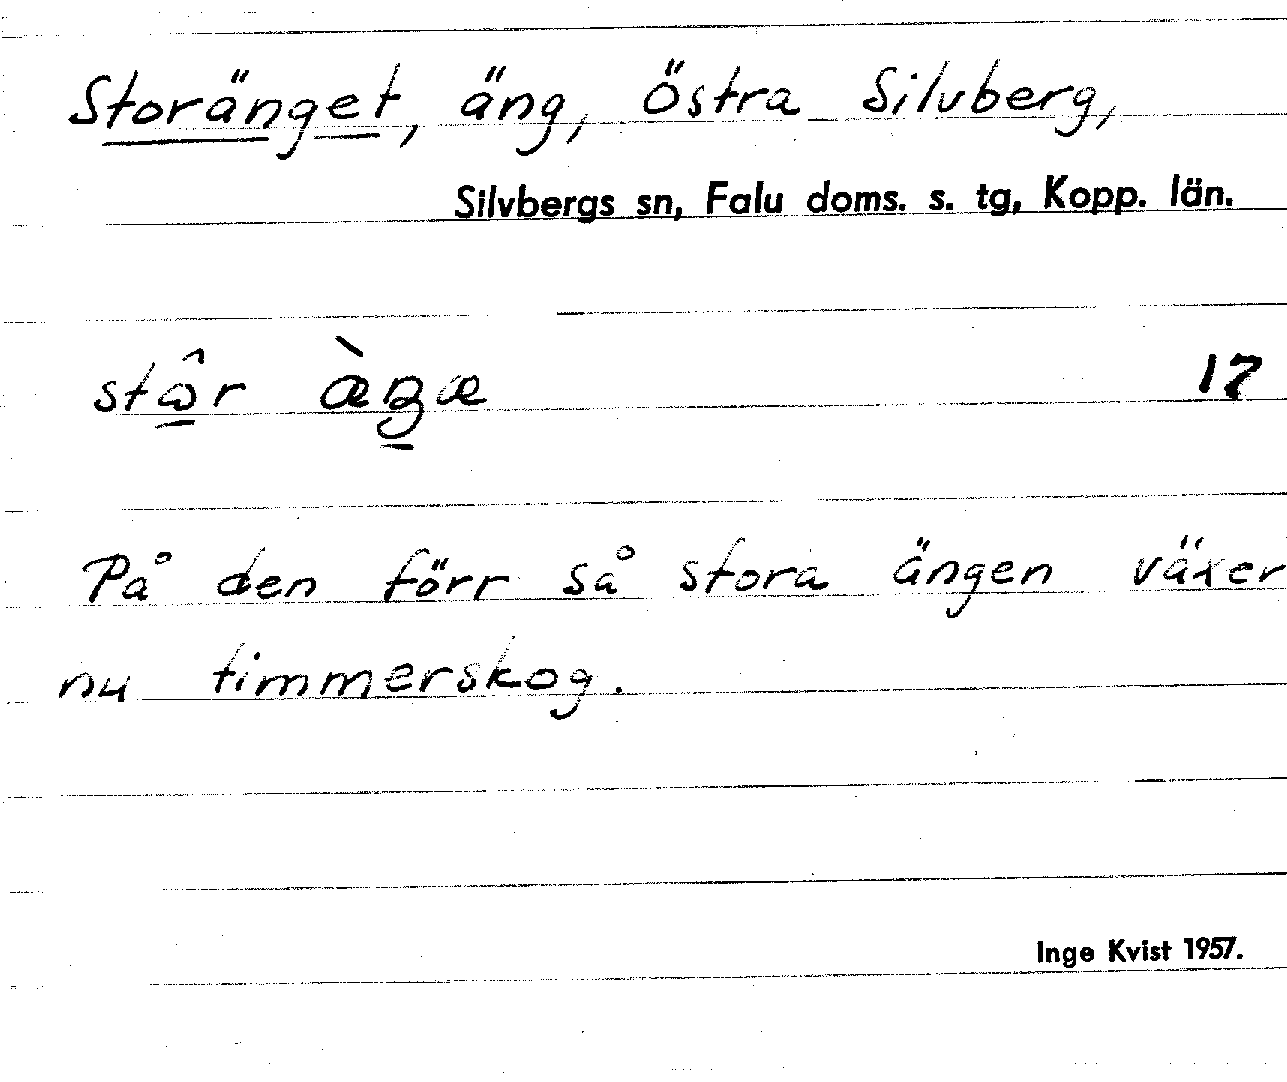 Storänget, äng, Östra Silvberg,
Silvbergs sn, Falu doms. s. tg, Kopp. län.
17
På den förr så stora ängen växer
nu timmerskog.
Inge Kvist 1957.